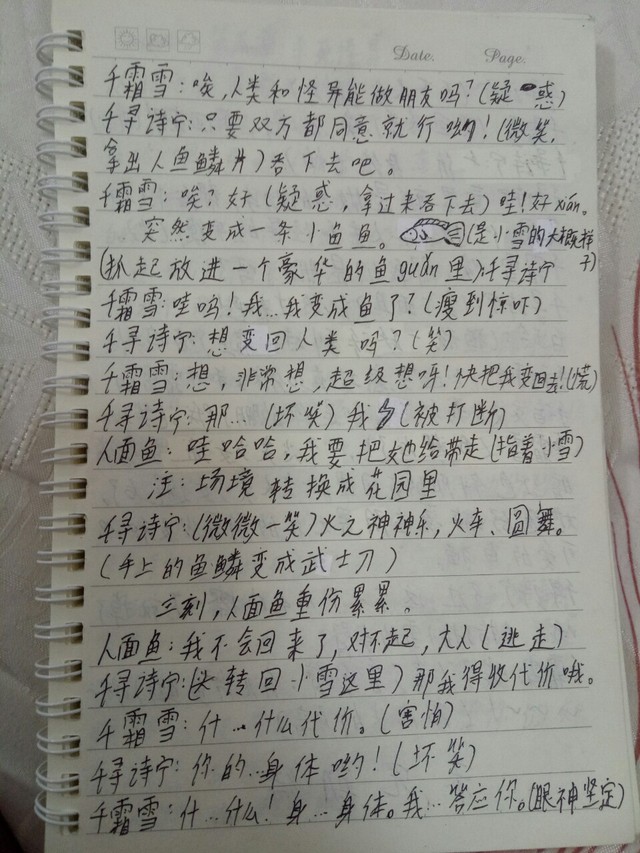 Date.    Page.
千霜雪：唉，人类和怪异能做朋友吗？(疑惑)
千寻诗宁：只要双方都同意就行哟！(微笑，
拿出人鱼鳞片)吞下去吧。
千霜雪：唉？好(疑惑，拿过来吞下去)哇！好xián。
突然变成一条小鱼鱼。(是小雪的大概样子)
(抓起放进一个豪华的鱼guǎn里)千寻诗宁
千霜雪：哇吗！我…我变成鱼了？(瘦到惊吓)
千寻诗宁：想变回人类吗？(笑)
千霜雪：想，非常想，超级想呀！快把我变回去！(慌)
千寻诗宁：那…(坏笑)我(被打断)
人面鱼：哇哈哈，我要把她给带走(指着小雪)
注：场境转换成花园里
千寻诗宁：(微微一笑)火之神神乐，火车、圆舞。
(手上的鱼鳞变成武士刀)
立刻，人面鱼重伤累累。
人面鱼：我不会回来了，对不起，大人(逃走)
千寻诗宁：(转回小雪这里)那我得收代价哦。
千霜雪：什…什么代价。(害怕)
千寻诗宁：你的…身体哟！(坏笑)
千霜雪：什…什么！身…身体。我…答应你。(眼神坚定)